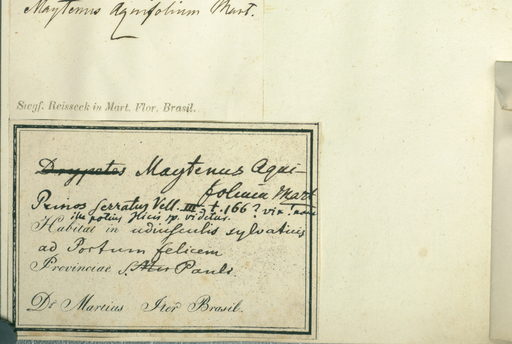 Maytenus Aquifolium Mart.
Siegf. Reisseck in Mart. Flor. Brasil.
Drypetes Maytenus Aqui-
folium Mart
Prinos serratus Vell. III. t. 166? vix! nam
illa potius Ilicis sp. videtur.
Habitat in udiusculis sylvaticis
ad Portum felicem
Provinciae S. Pauli.
Dr Martius Iter Brasil.